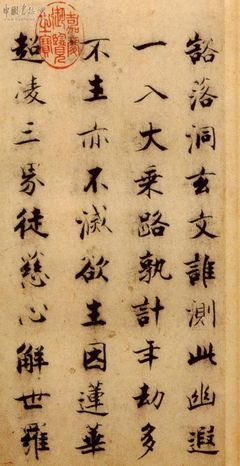 豁落洞玄文誰測此幽遐
一入大乘路孰計年劫多
不生亦不滅欲生因蓮華
超凌三界徒慈心解世羅
嘉慶御覽之寶